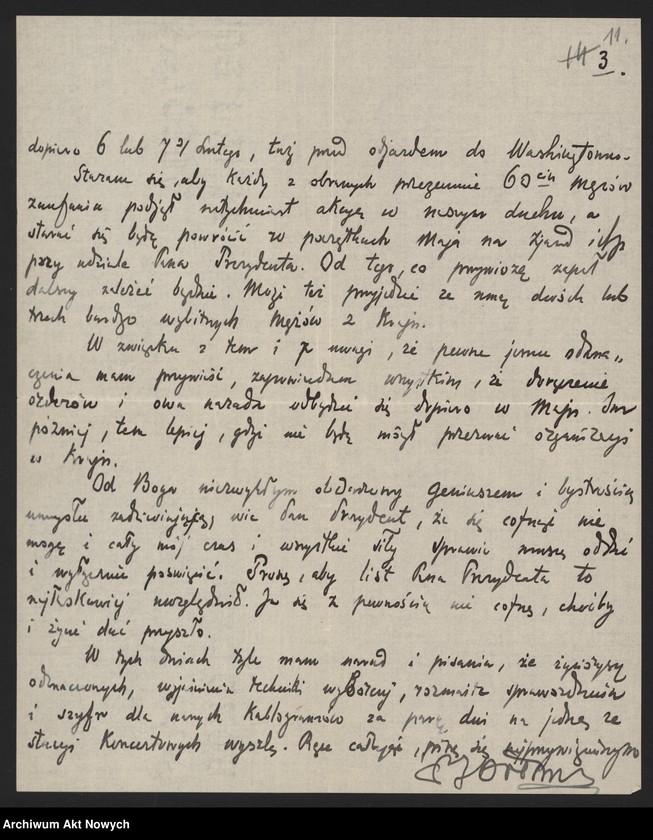 11.
3.
dopiero 6 lub 7 Lutego, tuż przed odjazdem do Washingtonu.
Staram się, aby każdy z obranych przezemnie 60ciu mężów
zaufania podjął natychmiast akcyę w naszym duchu, a
starać się będę powrócić w początkach Maja na zjazd
przy udziale Pana Prezydenta. Od tego, co przywiozę zapał
dalszy zależeć będzie. Może też przyjedzie ze mną dwóch lub
trzech bardzo wybitnych mężów z Kraju.
W związku z tem i z uwagi, że pewne jemu odzna„
czenia mam przywieść, zapowiedziałem wszystkim, że doręczenie
orderów i owa narada odbędzie się dopiero w Maju. Im
później, tem lepiej, gdyż nie będą mógł przerwać organizacyi
w Kraju.
Od Boga niezwykłym obdarzony geniuszem i bystrością
umysłu zadziwiającą, wie Pan Prezydent, że się cofnąć nie
mogę i cały mój czas i wszystkie siły sprawie muszę oddać
i wyłącznie poświęcić. Proszę, aby list Pana Prezydenta to
najłaskawiej uwzględnił. Ja się z pewnością nie cofnę, choćby
i życie dać przyszło.
W tych dniach tyle mam narad i pisania, że
odznaczonych, wyjaśnienia techniki wyborczej, rozmaite sprawozdania
i szyfr dla nowych Kablogramów za parę dni na jednej ze
stacyi Koncertowych wyszlę. Ręce całując, piszę się najprzywiązańszym
Archiwum Akt Nowych